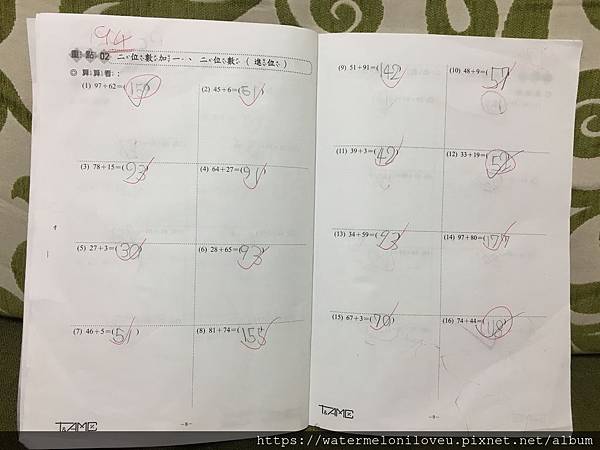 94
重點 02 二位數加一、二位數（進位）
◎ 算算看：
(1) 97+62=(159)
(2) 45+6=(51)
(3) 78+15=(93)
(4) 64+27=(91)
(5) 27+3=(30)
(6) 28+65=(93)
(7) 46+5=(51)
(8) 81+74=(155)
-8-
(9) 51+91=(142)
(10) 48+9=(57)
(11) 39+3=(42)
(12) 33+19=(52)
(13) 34+59=(93)
(14) 97+80=(177)
(15) 67+3=(70)
(16) 74+44=(118)
-9-
https://watermeloniloveu.pixnet.net/album